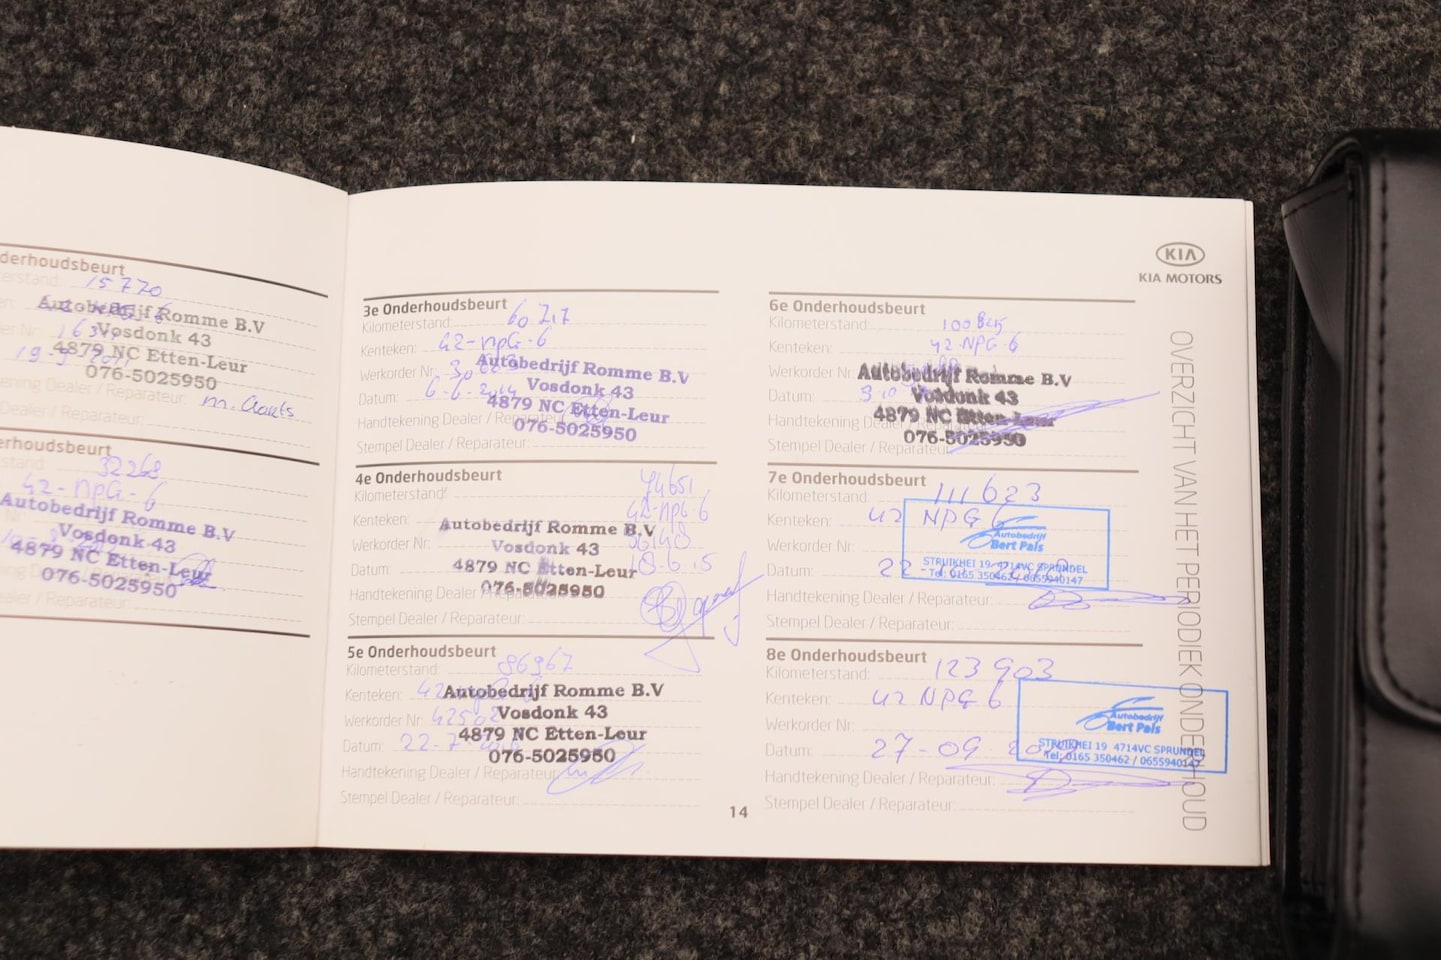 derhoudsbeurt
erstand: 15770
Autobedrijf Romme B.V
Vosdonk 43
4879 NC Etten-Leur
076-5025950
ening Dealer / Reparateur: m. Aarts
Dealer / Reparateur:
erhoudsbeurt
stand: 32268
42-NPG-6
Autobedrijf Romme B.V
Vosdonk 43
4879 NC Etten-Leur
076-5025950
Dealer / Reparateur:
3e Onderhoudsbeurt
Kilometerstand:
Kenteken: 42-NPG-6
Werkorder Nr:
Datum: 6-6-2014
Autobedrijf Romme B.V
Vosdonk 43
4879 NC Etten-Leur
076-5025950
Handtekening Dealer / Reparateur:
Stempel Dealer / Reparateur:
4e Onderhoudsbeurt
Kilometerstand: 74651
Kenteken: 42-NPG-6
Werkorder Nr:
Datum: 18-6-15
Autobedrijf Romme B.V
Vosdonk 43
4879 NC Etten-Leur
076-5025950
Handtekening Dealer / Reparateur:
Stempel Dealer / Reparateur:
5e Onderhoudsbeurt
Kilometerstand: 86967
Kenteken: 42
Werkorder Nr:
Datum: 22-7-
Autobedrijf Romme B.V
Vosdonk 43
4879 NC Etten-Leur
076-5025950
Handtekening Dealer / Reparateur:
Stempel Dealer / Reparateur:
14
KIA
KIA MOTORS
6e Onderhoudsbeurt
Kilometerstand:
Kenteken: 42-NPG-6
Werkorder Nr:
Datum:
Autobedrijf Romme B.V
Vosdonk 43
4879 NC Etten-Leur
076-5025950
Handtekening Dealer / Reparateur:
Stempel Dealer / Reparateur:
7e Onderhoudsbeurt
Kilometerstand: 111623
Kenteken: 42 NPG 6
Werkorder Nr:
Datum: 22
Autobedrijf
Bert Pals
STRUIKHEI 19 4714VC SPRUNDEL
Tel: 0165 350462 / 0655940147
Handtekening Dealer / Reparateur:
Stempel Dealer / Reparateur:
8e Onderhoudsbeurt
Kilometerstand: 123903
Kenteken: 42 NPG 6
Werkorder Nr:
Datum: 27-09
Autobedrijf
Bert Pals
STRUIKHEI 19 4714VC SPRUNDEL
Tel: 0165 350462 / 0655940147
Handtekening Dealer / Reparateur:
Stempel Dealer / Reparateur:
OVERZICHT VAN HET PERIODIEK ONDERHOUD